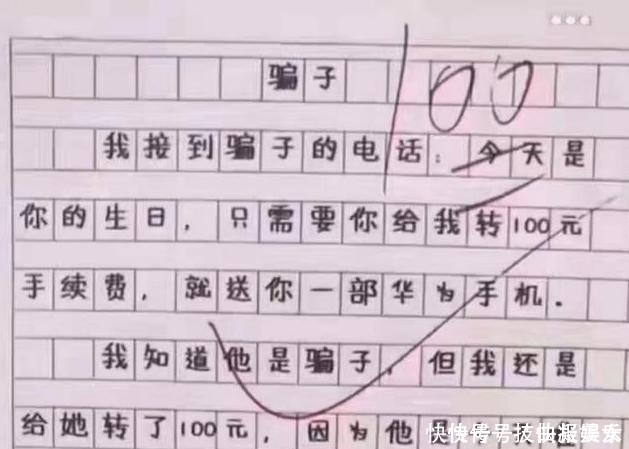 骗子
100
我接到骗子的电话：今天是
你的生日，只需要你给我转100元
手续费，就送你一部华为手机.
我知道他是骗子，但我还是
给她转了100元，因为他